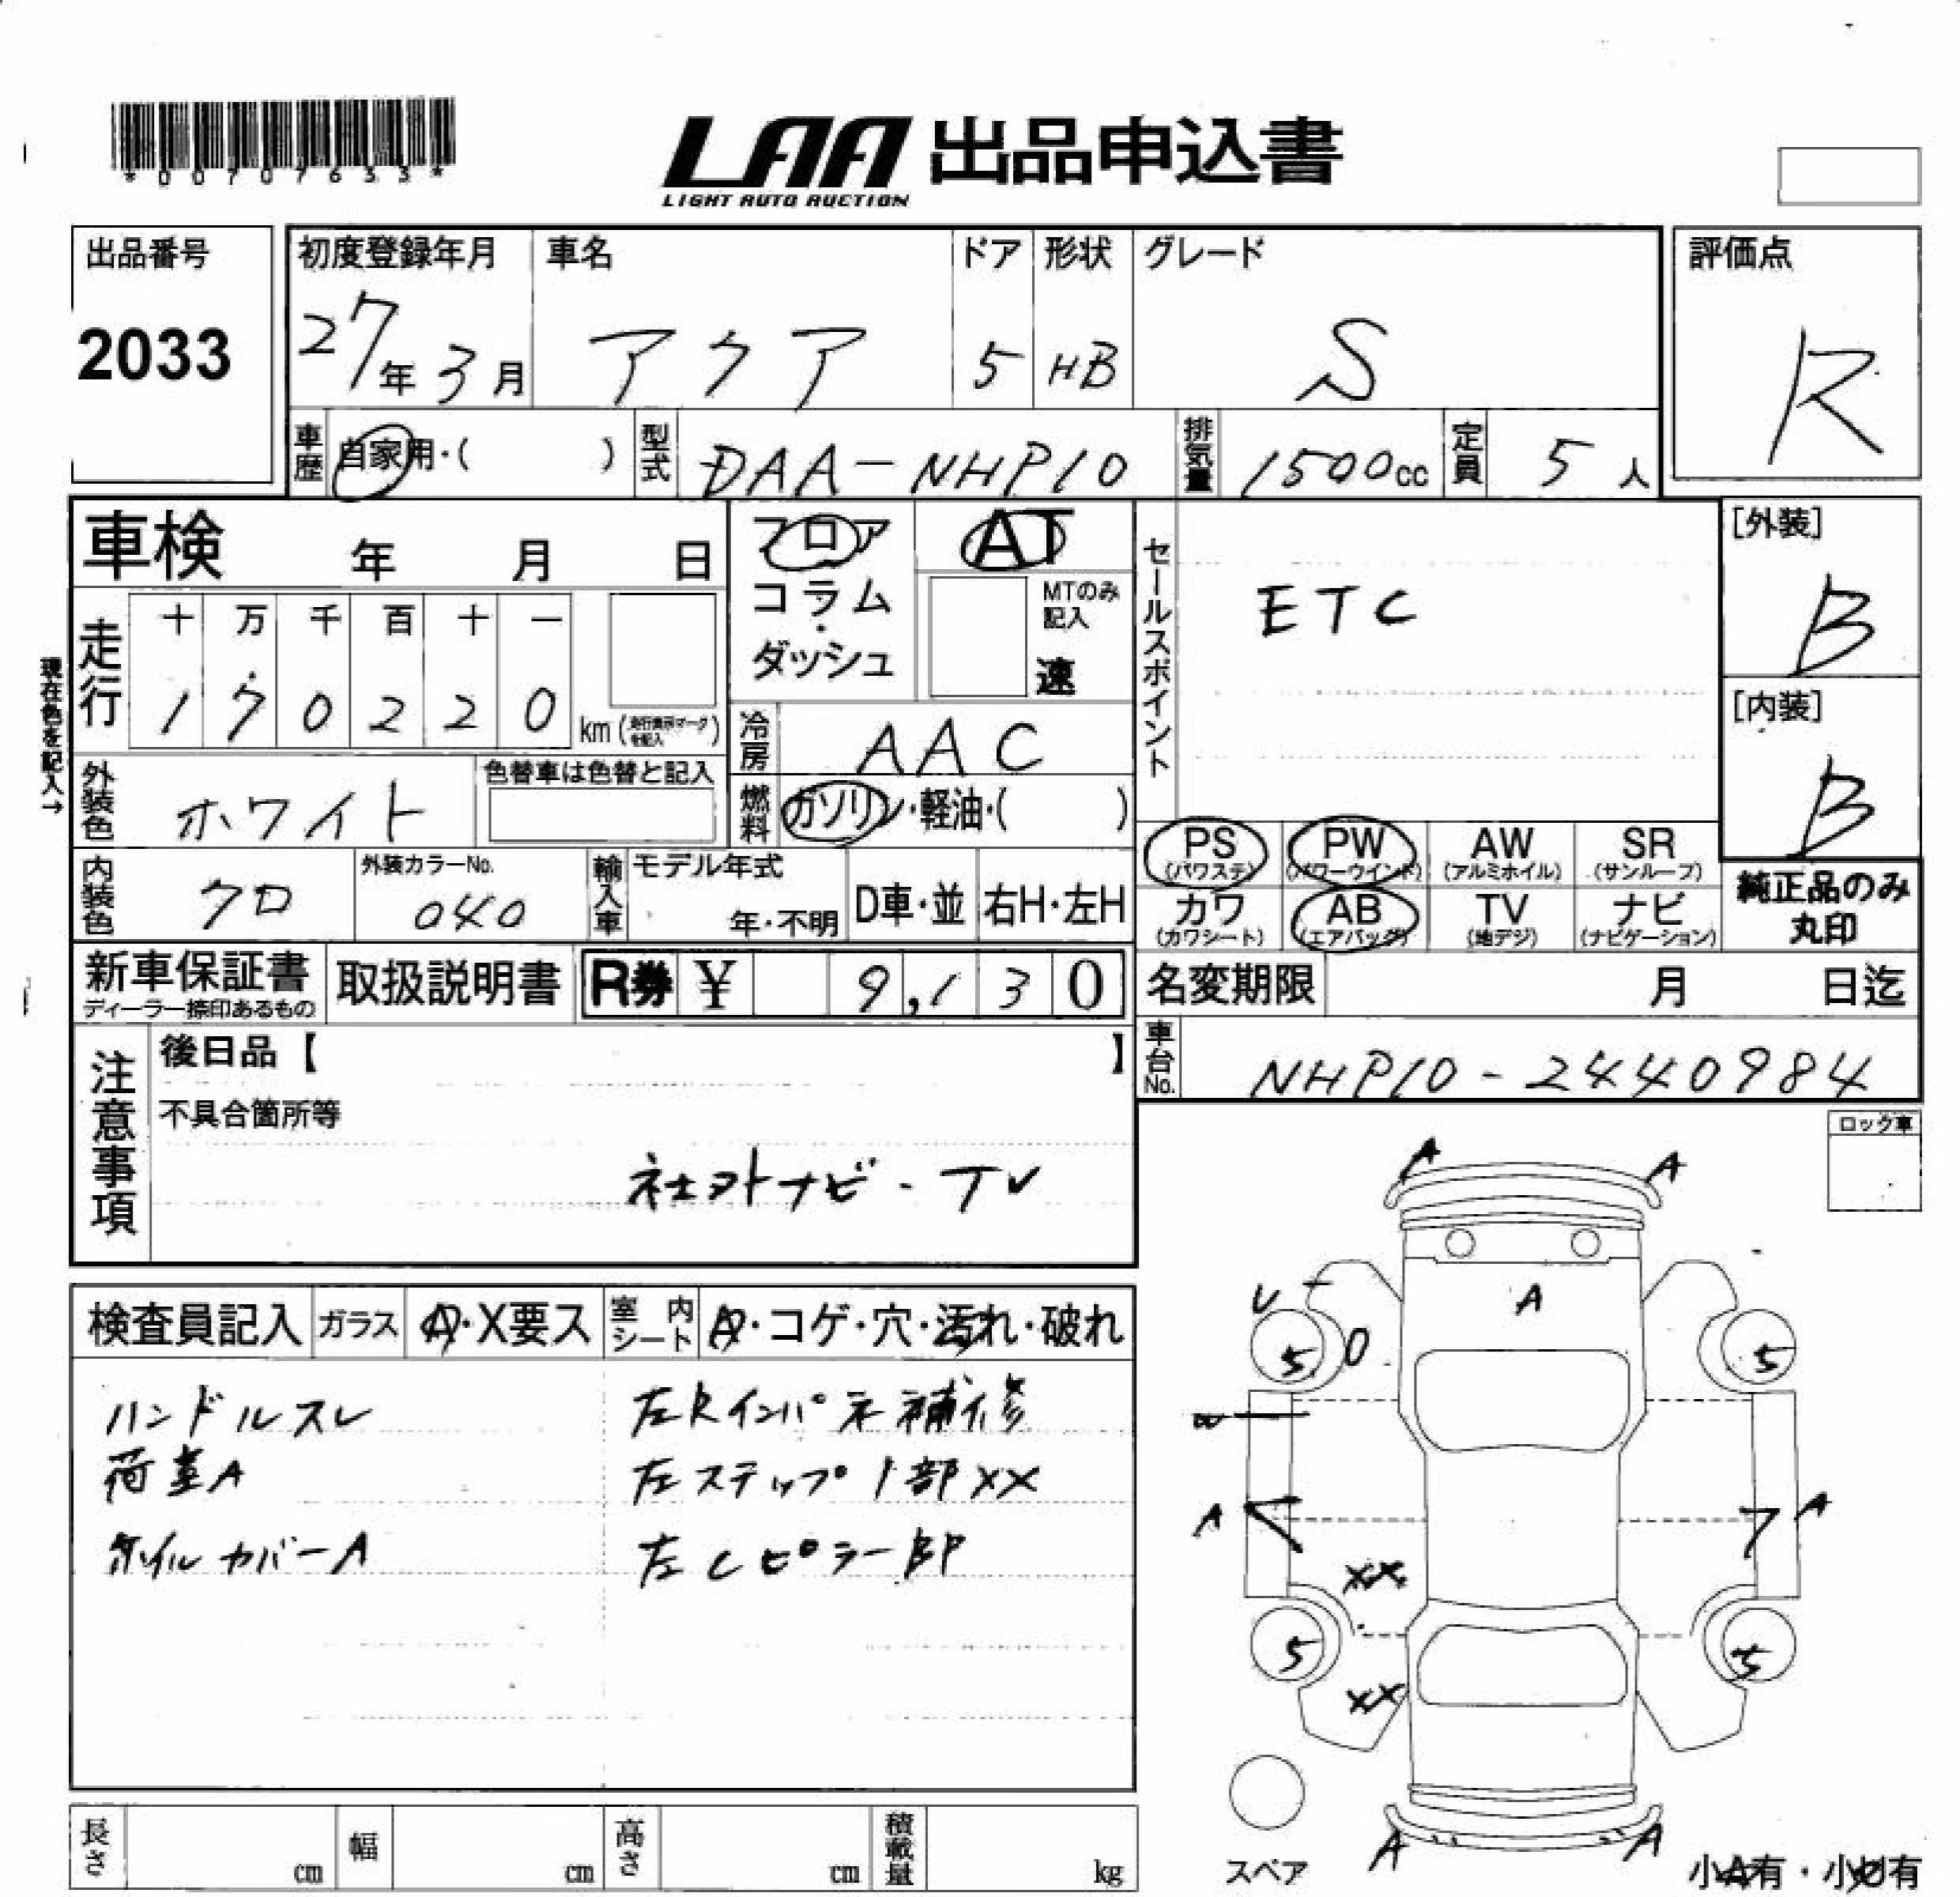 *00707633*
LAA 出品申込書
LIGHT AUTO AUCTION
出品番号
2033
初度登録年月
27年3月
車名
アクア
ドア
5
形状
HB
グレード
S
評価点
R
車歴 自家用・( )
型式 DAA-NHP10
排気量 1500cc
定員 5人
車検 年 月 日
フロア
コラム
・
ダッシュ
AT
MTのみ
記入
速
セールスポイント
ETC
[外装]
B
[内装]
B
現在色を記入→
走行
十 万 千 百 十 一
1 7 0 2 2 0 km
冷房 AAC
外装色 ホワイト
色替車は色替と記入
燃料 ガソリン・軽油・( )
内装色 クロ
外装カラーNo.
040
輸入車
モデル年式
年・不明
D車・並
右H・左H
PS (パワステ)
PW (パワーウインド)
AW (アルミホイル)
SR (サンルーフ)
カワ (カワシート)
AB (エアバッグ)
TV (地デジ)
ナビ (ナビゲーション)
純正品のみ
丸印
新車保証書
ディーラー捺印あるもの
取扱説明書
R券 ¥ 9,130
名変期限 月 日迄
車台No. NHP10-2440984
注意事項
後日品【 】
不具合箇所等
社外ナビ・TV
ロック車
検査員記入
ガラス
A・X要ス
室内シート
A・コゲ・穴・汚れ・破れ
ハンドルスレ
荷室A
ホイルカバーA
左Rインパネ補修
左ステップ1部XX
左CピラーBP
A A
U A
5 O 5
A A
XX
5 5
XX
A A
スペア
小A有・小U有
長さ cm
幅 cm
高さ cm
積載量 kg